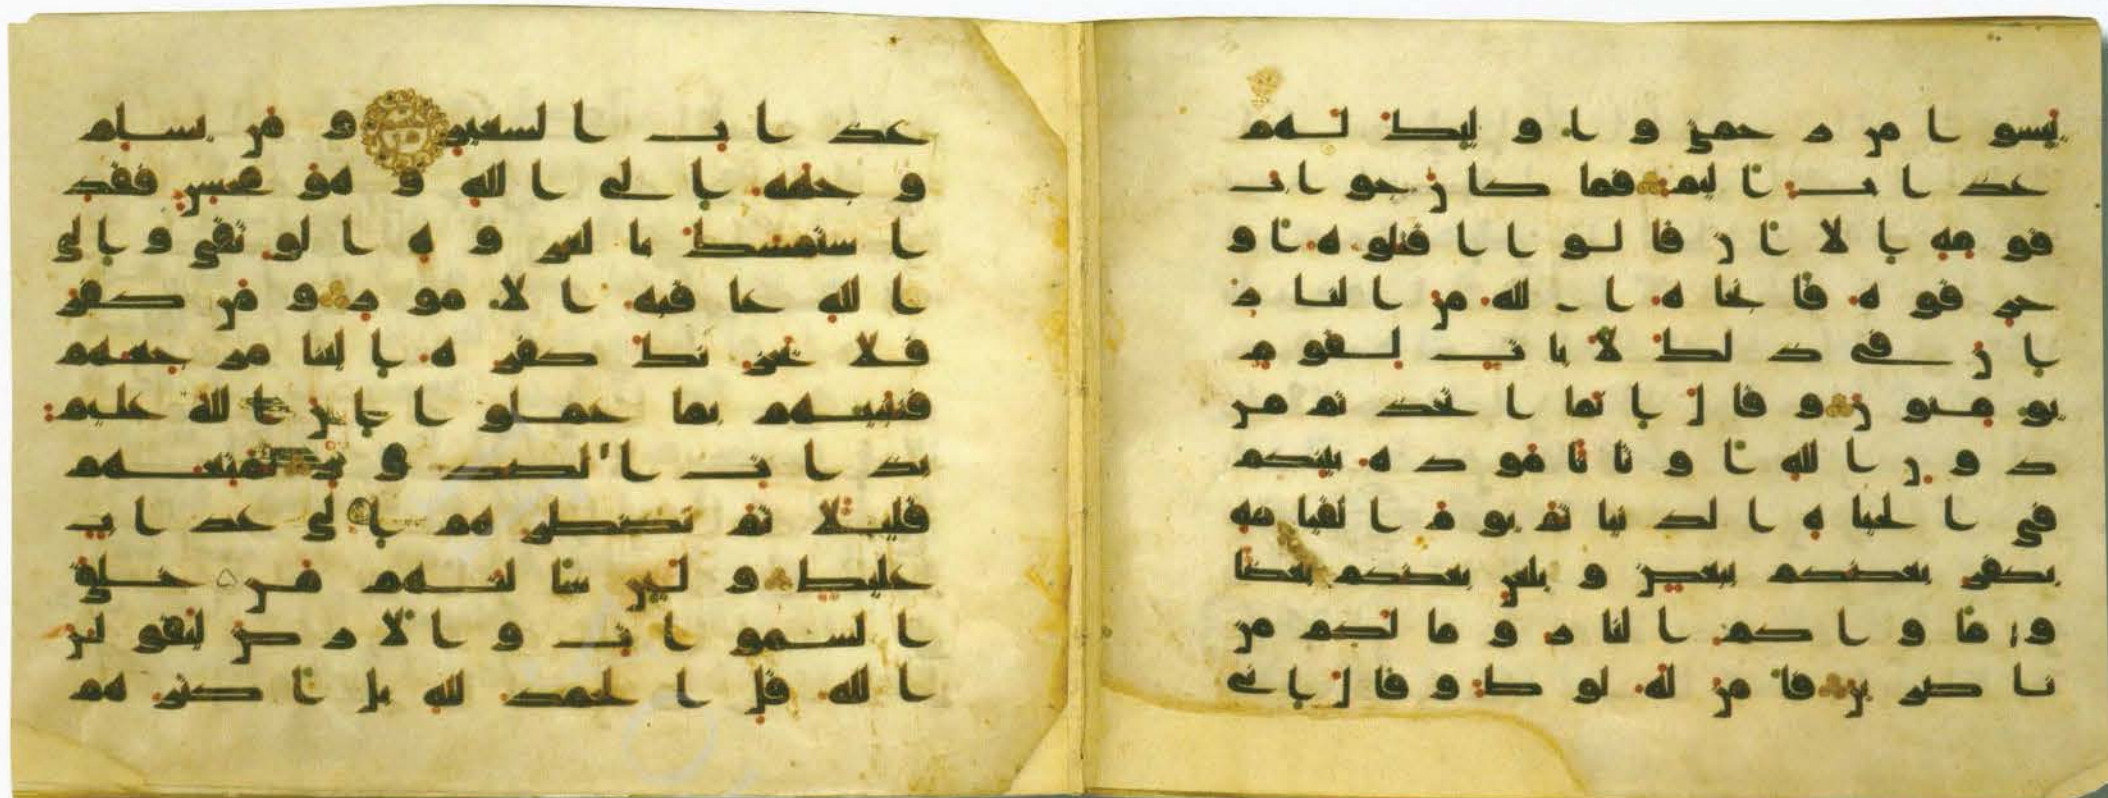 يئسوا من رحمتي وأولئك لهم
عذاب أليم فما كان جواب
قومه إلا أن قالوا اقتلوه أو
حرقوه فأنجاه الله من النار
إن في ذلك لآيات لقوم
يؤمنون وقال إنما اتخذتم من
دون الله أوثانا مودة بينكم
في الحياة الدنيا ثم يوم القيامة
يكفر بعضكم ببعض ويلعن بعضكم بعضا
ومأواكم النار وما لكم من
ناصرين فآمن له لوط وقال إني
عذاب السعير ومن يسلم
وجهه إلى الله وهو محسن فقد
استمسك بالعروة الوثقى وإلى
الله عاقبة الأمور ومن كفر
فلا يحزنك كفره إلينا مرجعهم
فننبئهم بما عملوا إن الله عليم
بذات الصدور نمتعهم
قليلا ثم نضطرهم إلى عذاب
غليظ ولئن سألتهم من خلق
السموات والأرض ليقولن
الله قل الحمد لله بل أكثرهم